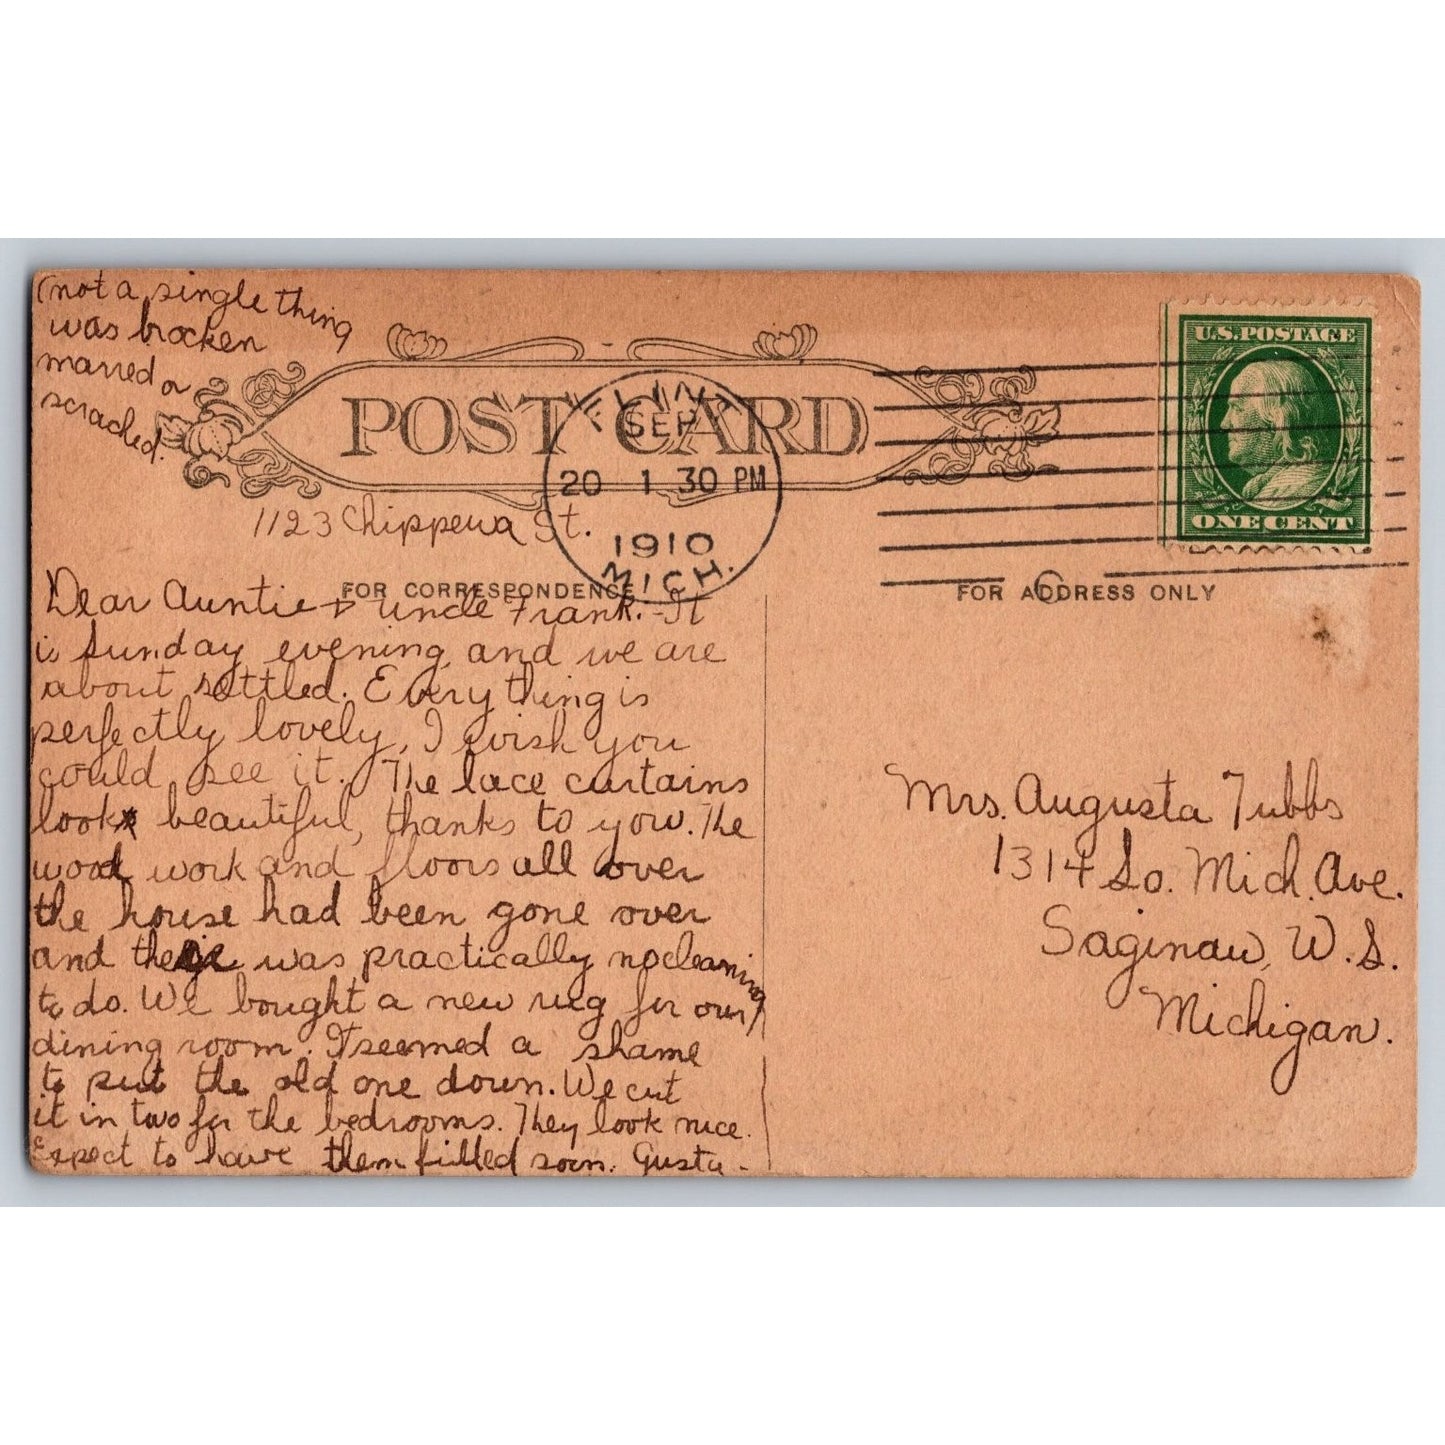 (not a single thing
was brocken
marred or
scrached.
U.S. POSTAGE
ONE CENT
POST CARD
FLINT
SEP
20 1 30 PM
1910
MICH.
1123 Chippewa St.
FOR CORRESPONDENCE
FOR ADDRESS ONLY
Dear Auntie & Uncle Frank. - It
is Sunday evening and we are
about settled. Everything is
perfectly lovely, I wish you
could see it. The lace curtains
look beautiful, thanks to you. The
wood work and floors all over
the house had been gone over
and there was practically no cleaning
to do. We bought a new rug for our
dining room. It seemed a shame
to put the old one down. We cut
it in two for the bedrooms. They look nice.
Expect to have them filled soon. Gusta -
Mrs. Augusta Tubbs
1314 So. Mich. Ave.
Saginaw, W. S.
Michigan.